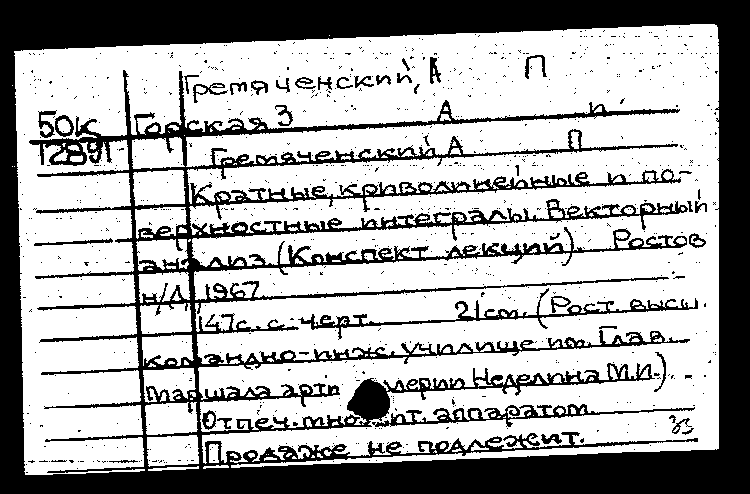 Гремяченский, А П
50к Горская З А п.
12891 Гремяченский, А П
Кратные, криволинейные и по-
верхностные интегралы. Векторный
анализ (Конспект лекций). Ростов
н/Д, 1967.
147с. с черт. 21см. (Рост. высш.
командно-инж. училище им. Глав.
маршала арти лерии Неделина М.И.)
Отпеч. множит. аппаратом.
Продаже не подлежит.